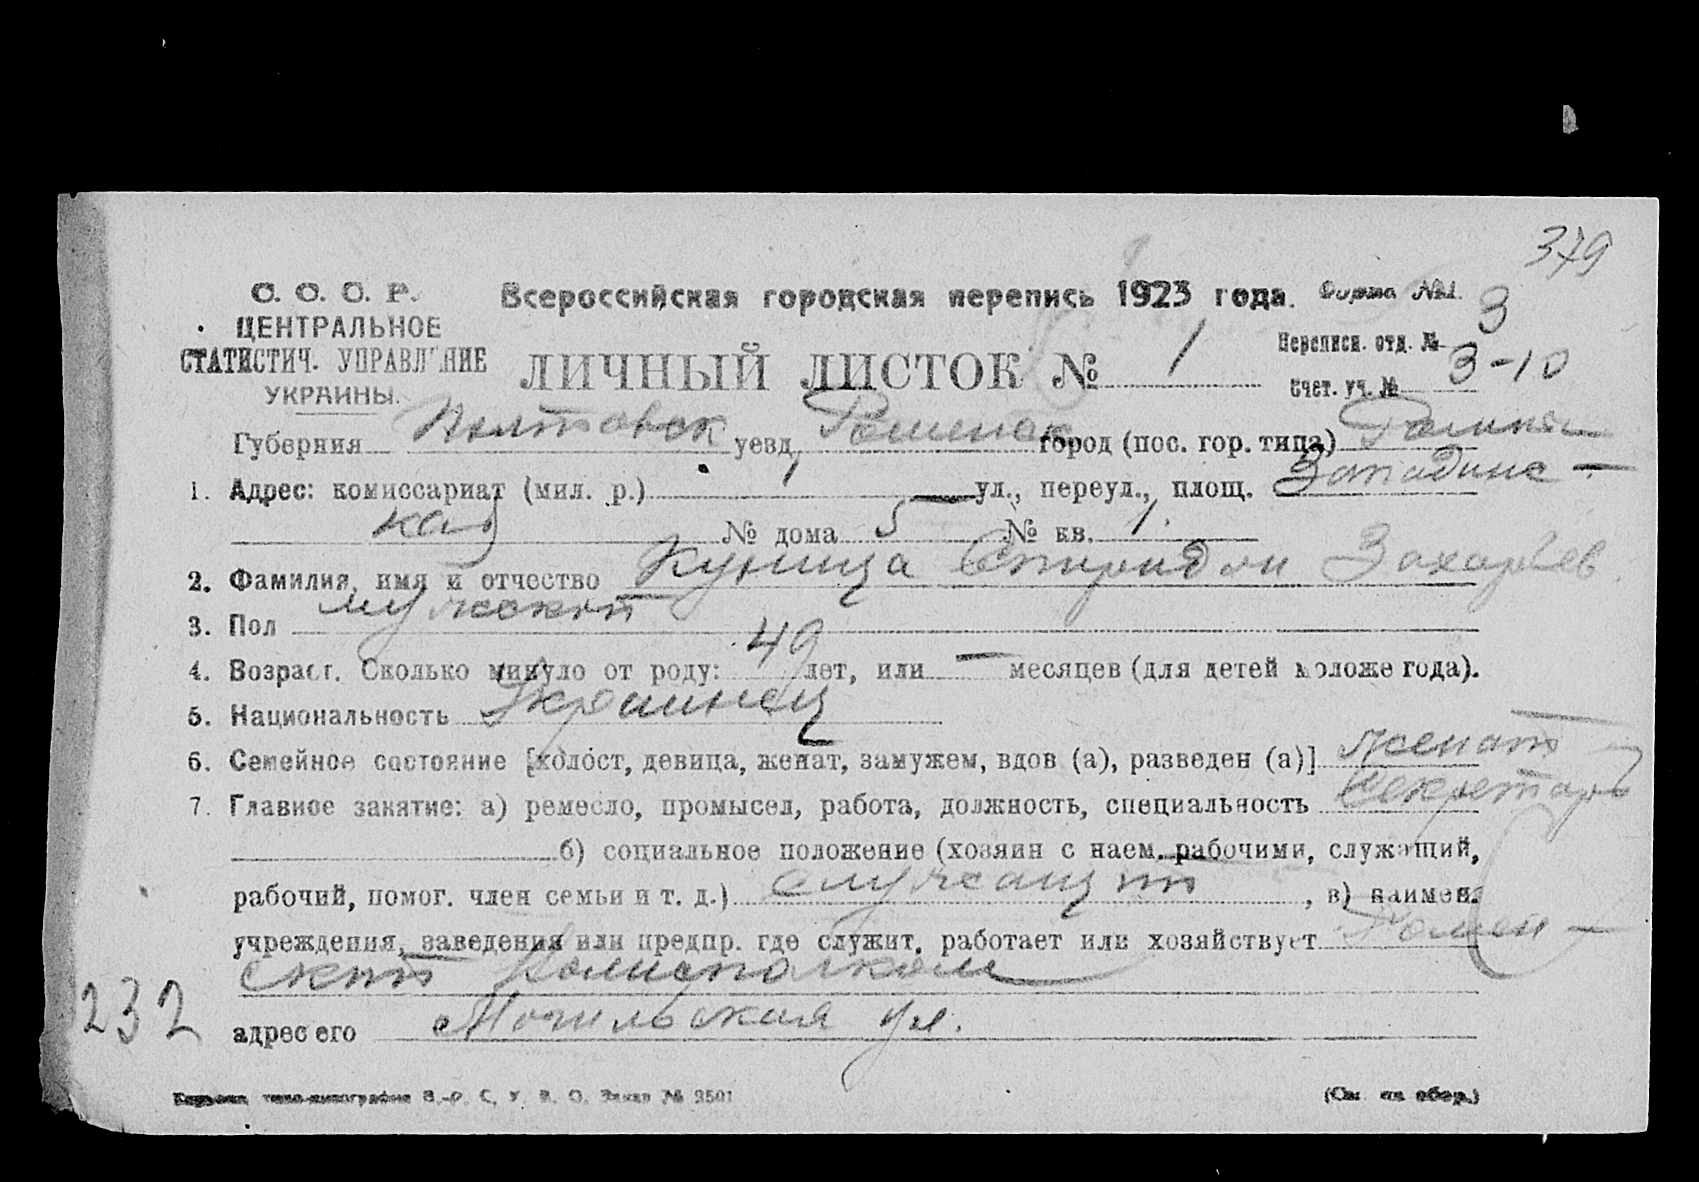 379
С. С. С. Р.
ЦЕНТРАЛЬНОЕ
СТАТИСТИЧ. УПРАВЛЕНИЕ
УКРАИНЫ.
Всероссийская городская перепись 1923 года. Форма №1.
ЛИЧНЫЙ ЛИСТОК № 1
Переписн. отд. № 3
Счет. уч. № 3-10
Губерния Полтавск уезд Роменск город (пос. гор. типа) Ромны
1. Адрес: комиссариат (мил. р.) 1 ул., переул., площ. Западинс-
кая № дома 5 № кв. 1.
2. Фамилия, имя и отчество Куница Спиридон Захарьев
3. Пол мужской
4. Возраст. Сколько минуло от роду: 49 лет, или — месяцев (для детей моложе года).
5. Национальность Украинец
6. Семейное состояние [холост, девица, женат, замужем, вдов (а), разведен (а)] женат
7. Главное занятие: а) ремесло, промысел, работа, должность, специальность секретарь
б) социальное положение (хозяин с наем. рабочими, служащий,
рабочий, помог. член семьи и т. д.) служащий, в) наимен.
учреждения, заведения или предпр. где служит, работает или хозяйствует Ромен-
ский
адрес его ул.
232
Заказ № 2501
(См. на обор.)